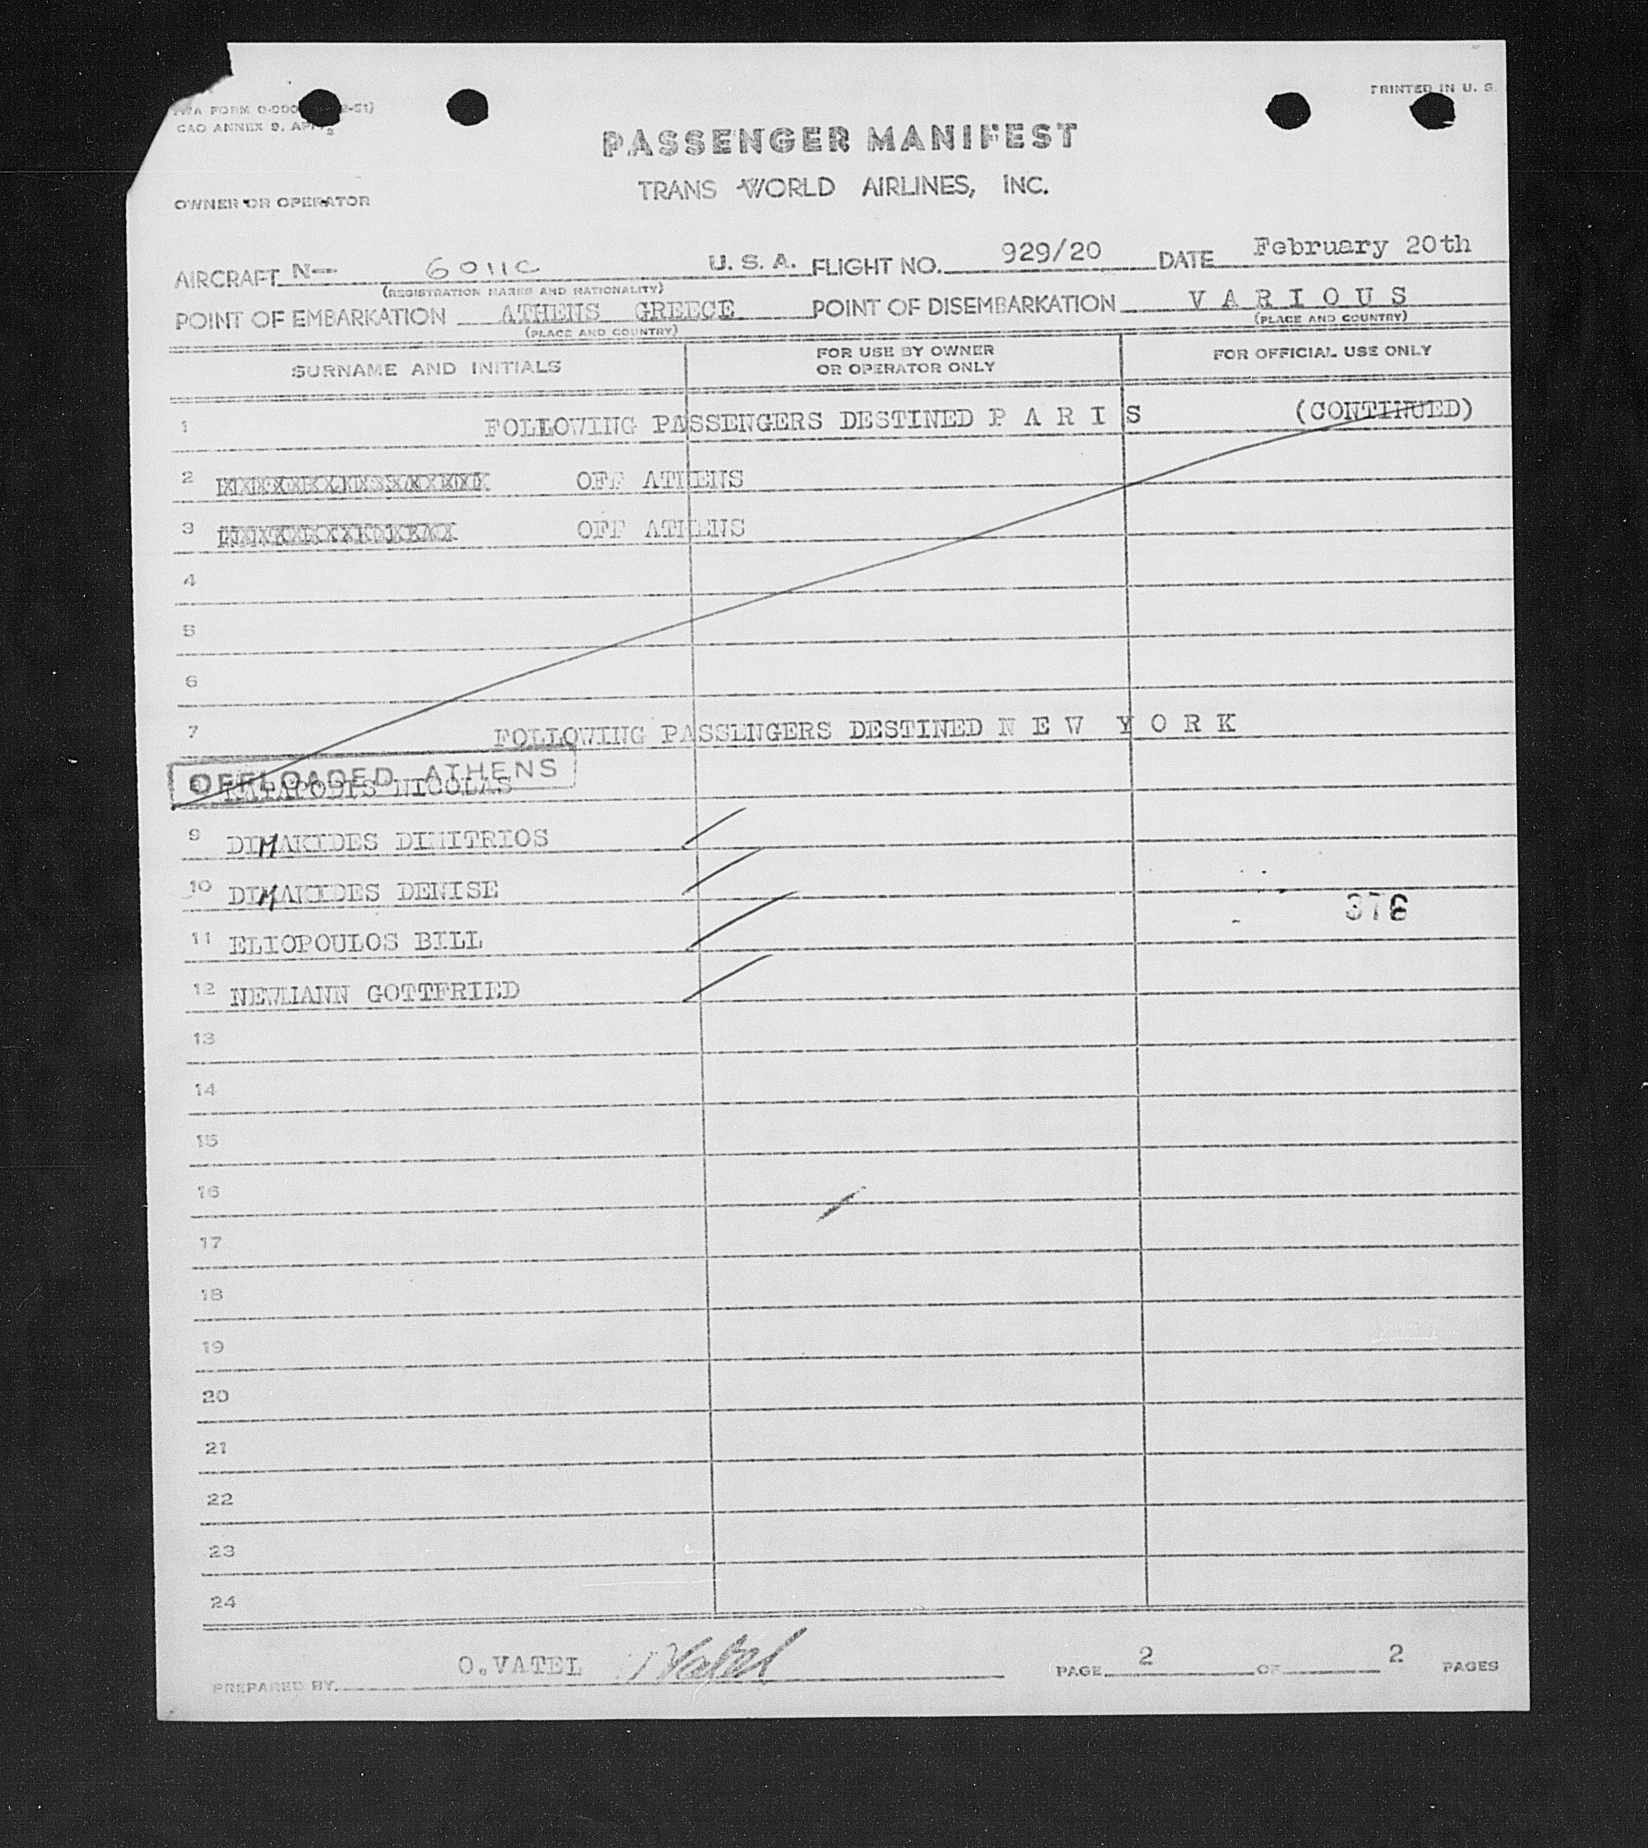 TWA FORM O-
PRINTED IN U. S.
CAO ANNEX 9, APP.
PASSENGER MANIFEST
TRANS WORLD AIRLINES, INC.
OWNER OR OPERATOR
AIRCRAFT N- 6011C U. S. A. FLIGHT NO. 929/20 DATE February 20th
(REGISTRATION MARKS AND NATIONALITY)
POINT OF EMBARKATION ATHENS GREECE POINT OF DISEMBARKATION V A R I O U S
(PLACE AND COUNTRY) (PLACE AND COUNTRY)
SURNAME AND INITIALS FOR USE BY OWNER OR OPERATOR ONLY FOR OFFICIAL USE ONLY
1 FOLLOWING PASSENGERS DESTINED P A R I S (CONTINUED)
2 OFF ATHENS
3 OFF ATHENS
4
5
6
7 FOLLOWING PASSENGERS DESTINED N E W Y O R K
OFFLOADED ATHENS
8 NICOLAS
9 DIMAKIDES DIMITRIOS
10 DIMAKIDES DENISE
378
11 ELIOPOULOS BILL
12 NEWMANN GOTTFRIED
13
14
15
16
17
18
19
20
21
22
23
24
PREPARED BY O.VATEL Vatel PAGE 2 OF 2 PAGES